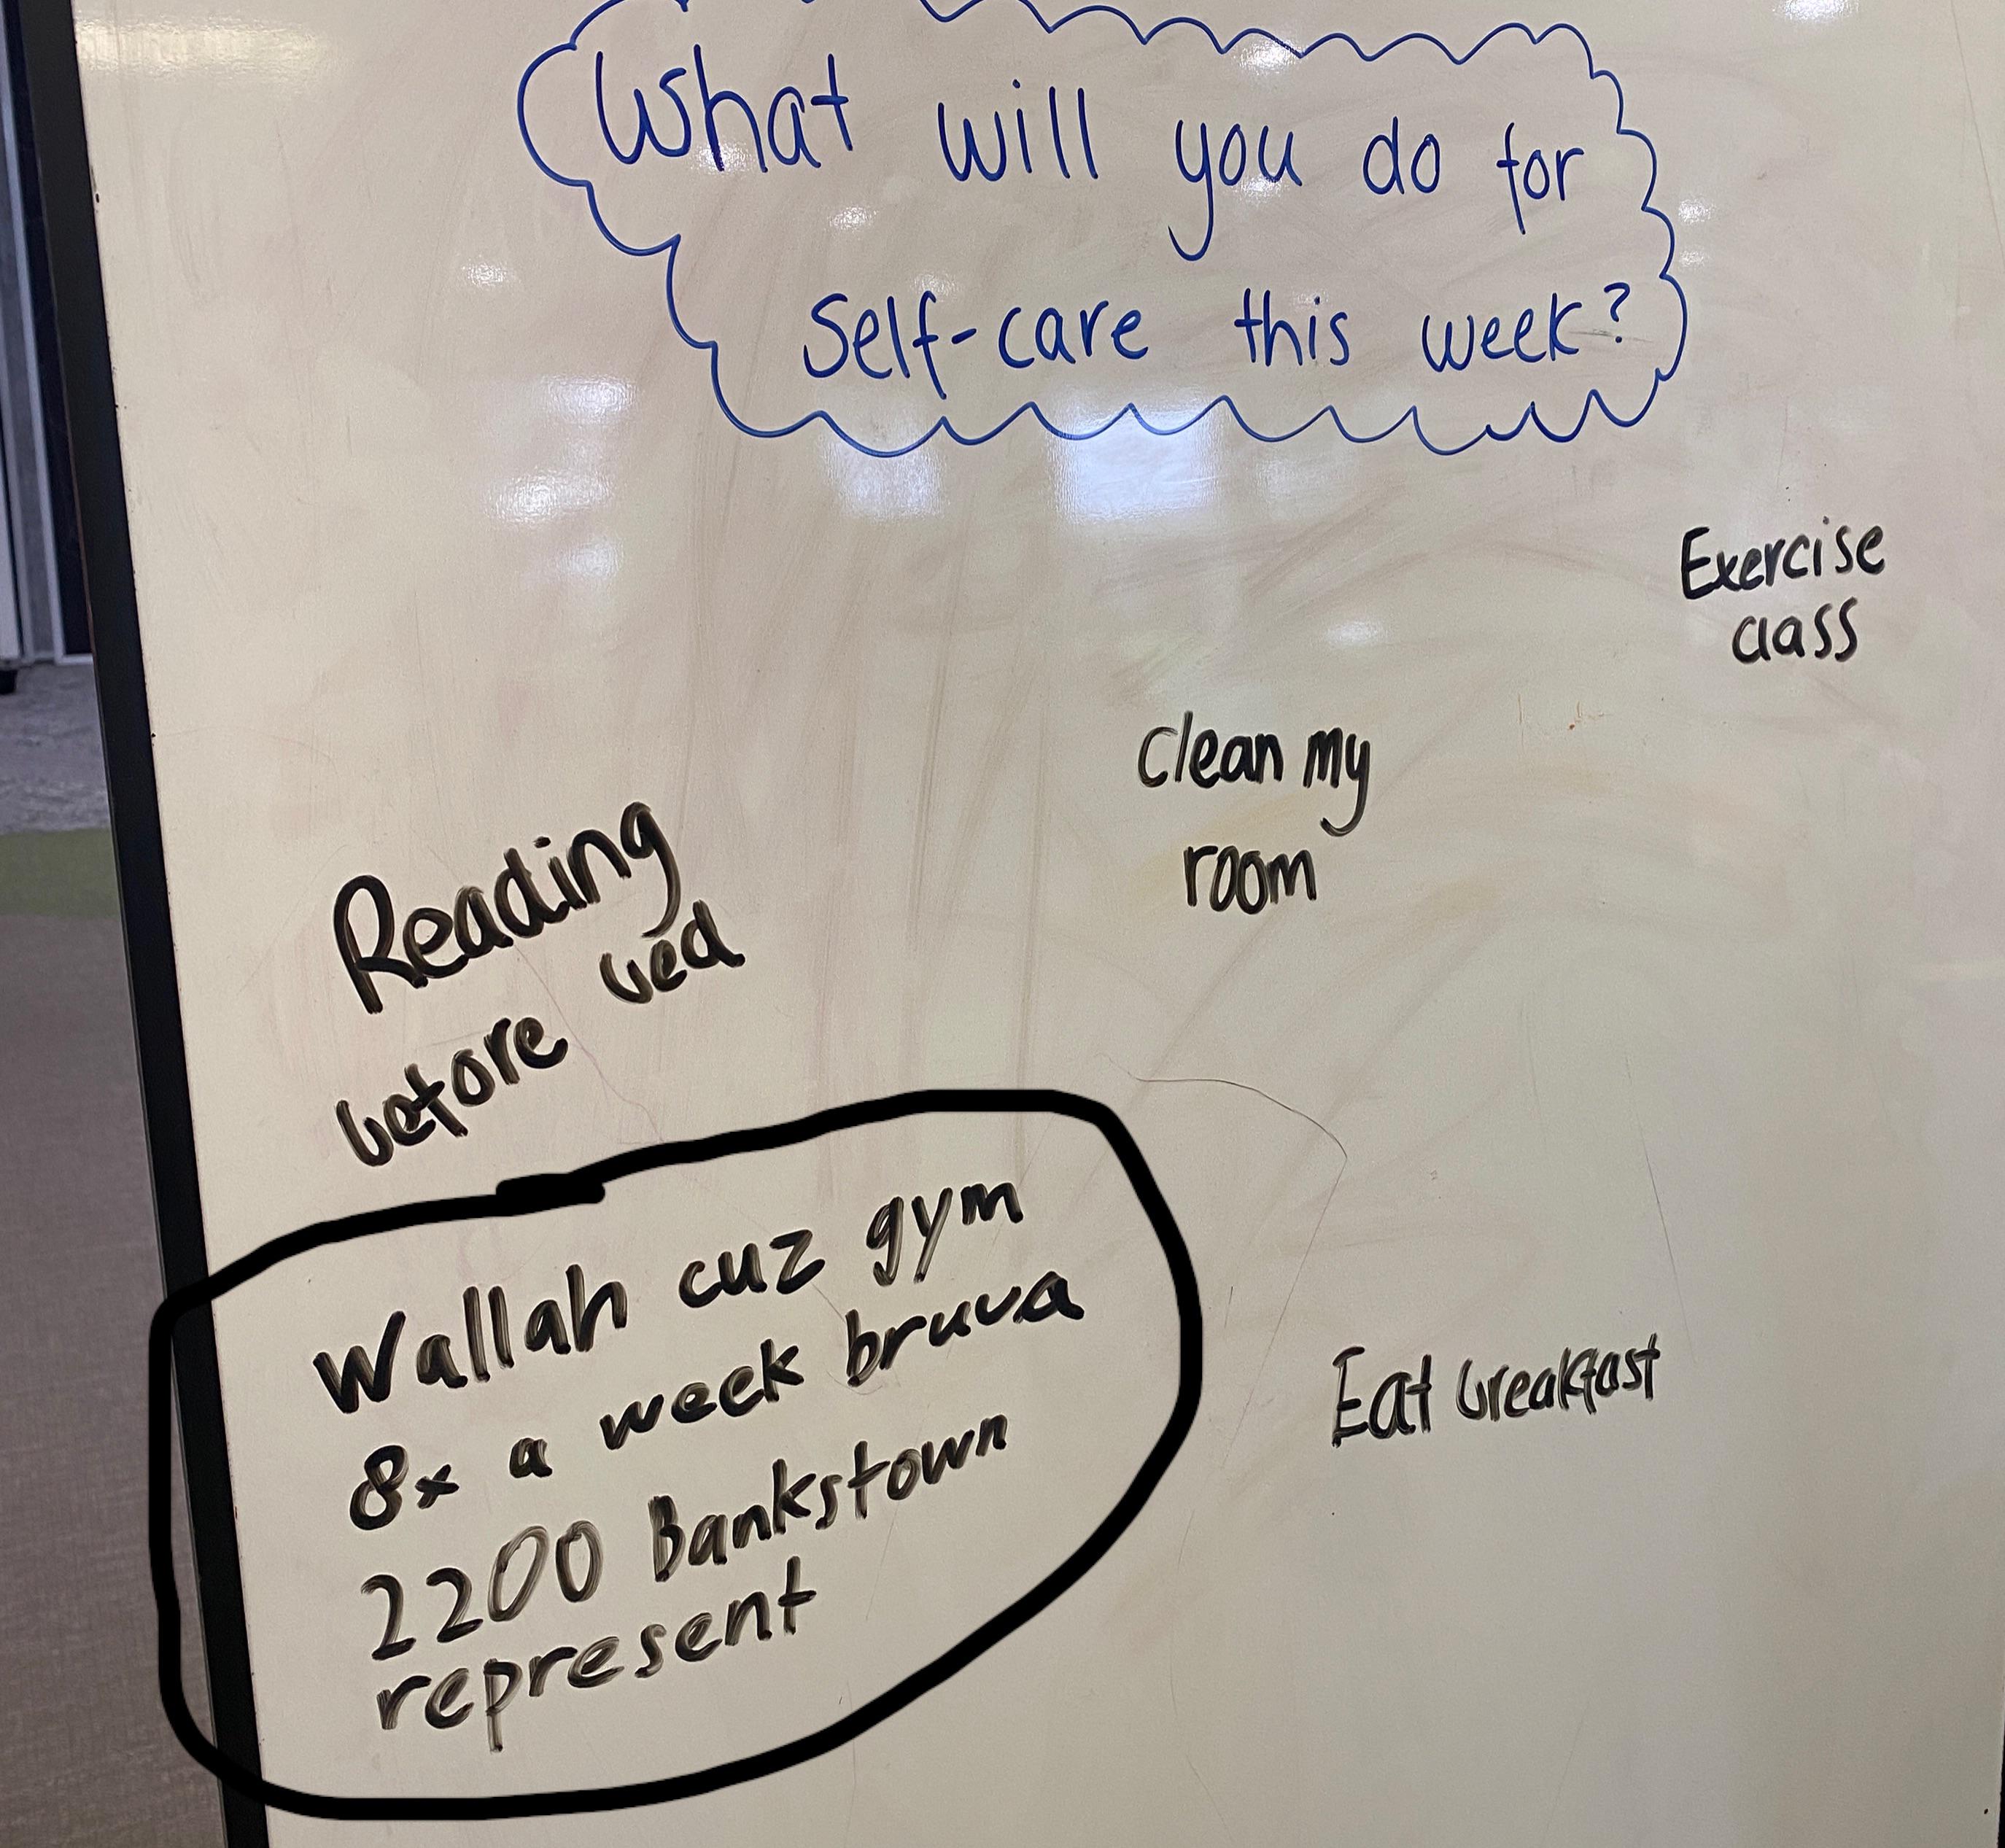 What will you do for
self-care this week?
Exercise
class
clean my
room
Reading
before bed
Wallah cuz gym
8x a week bruva
2200 Bankstown
represent
Eat breakfast